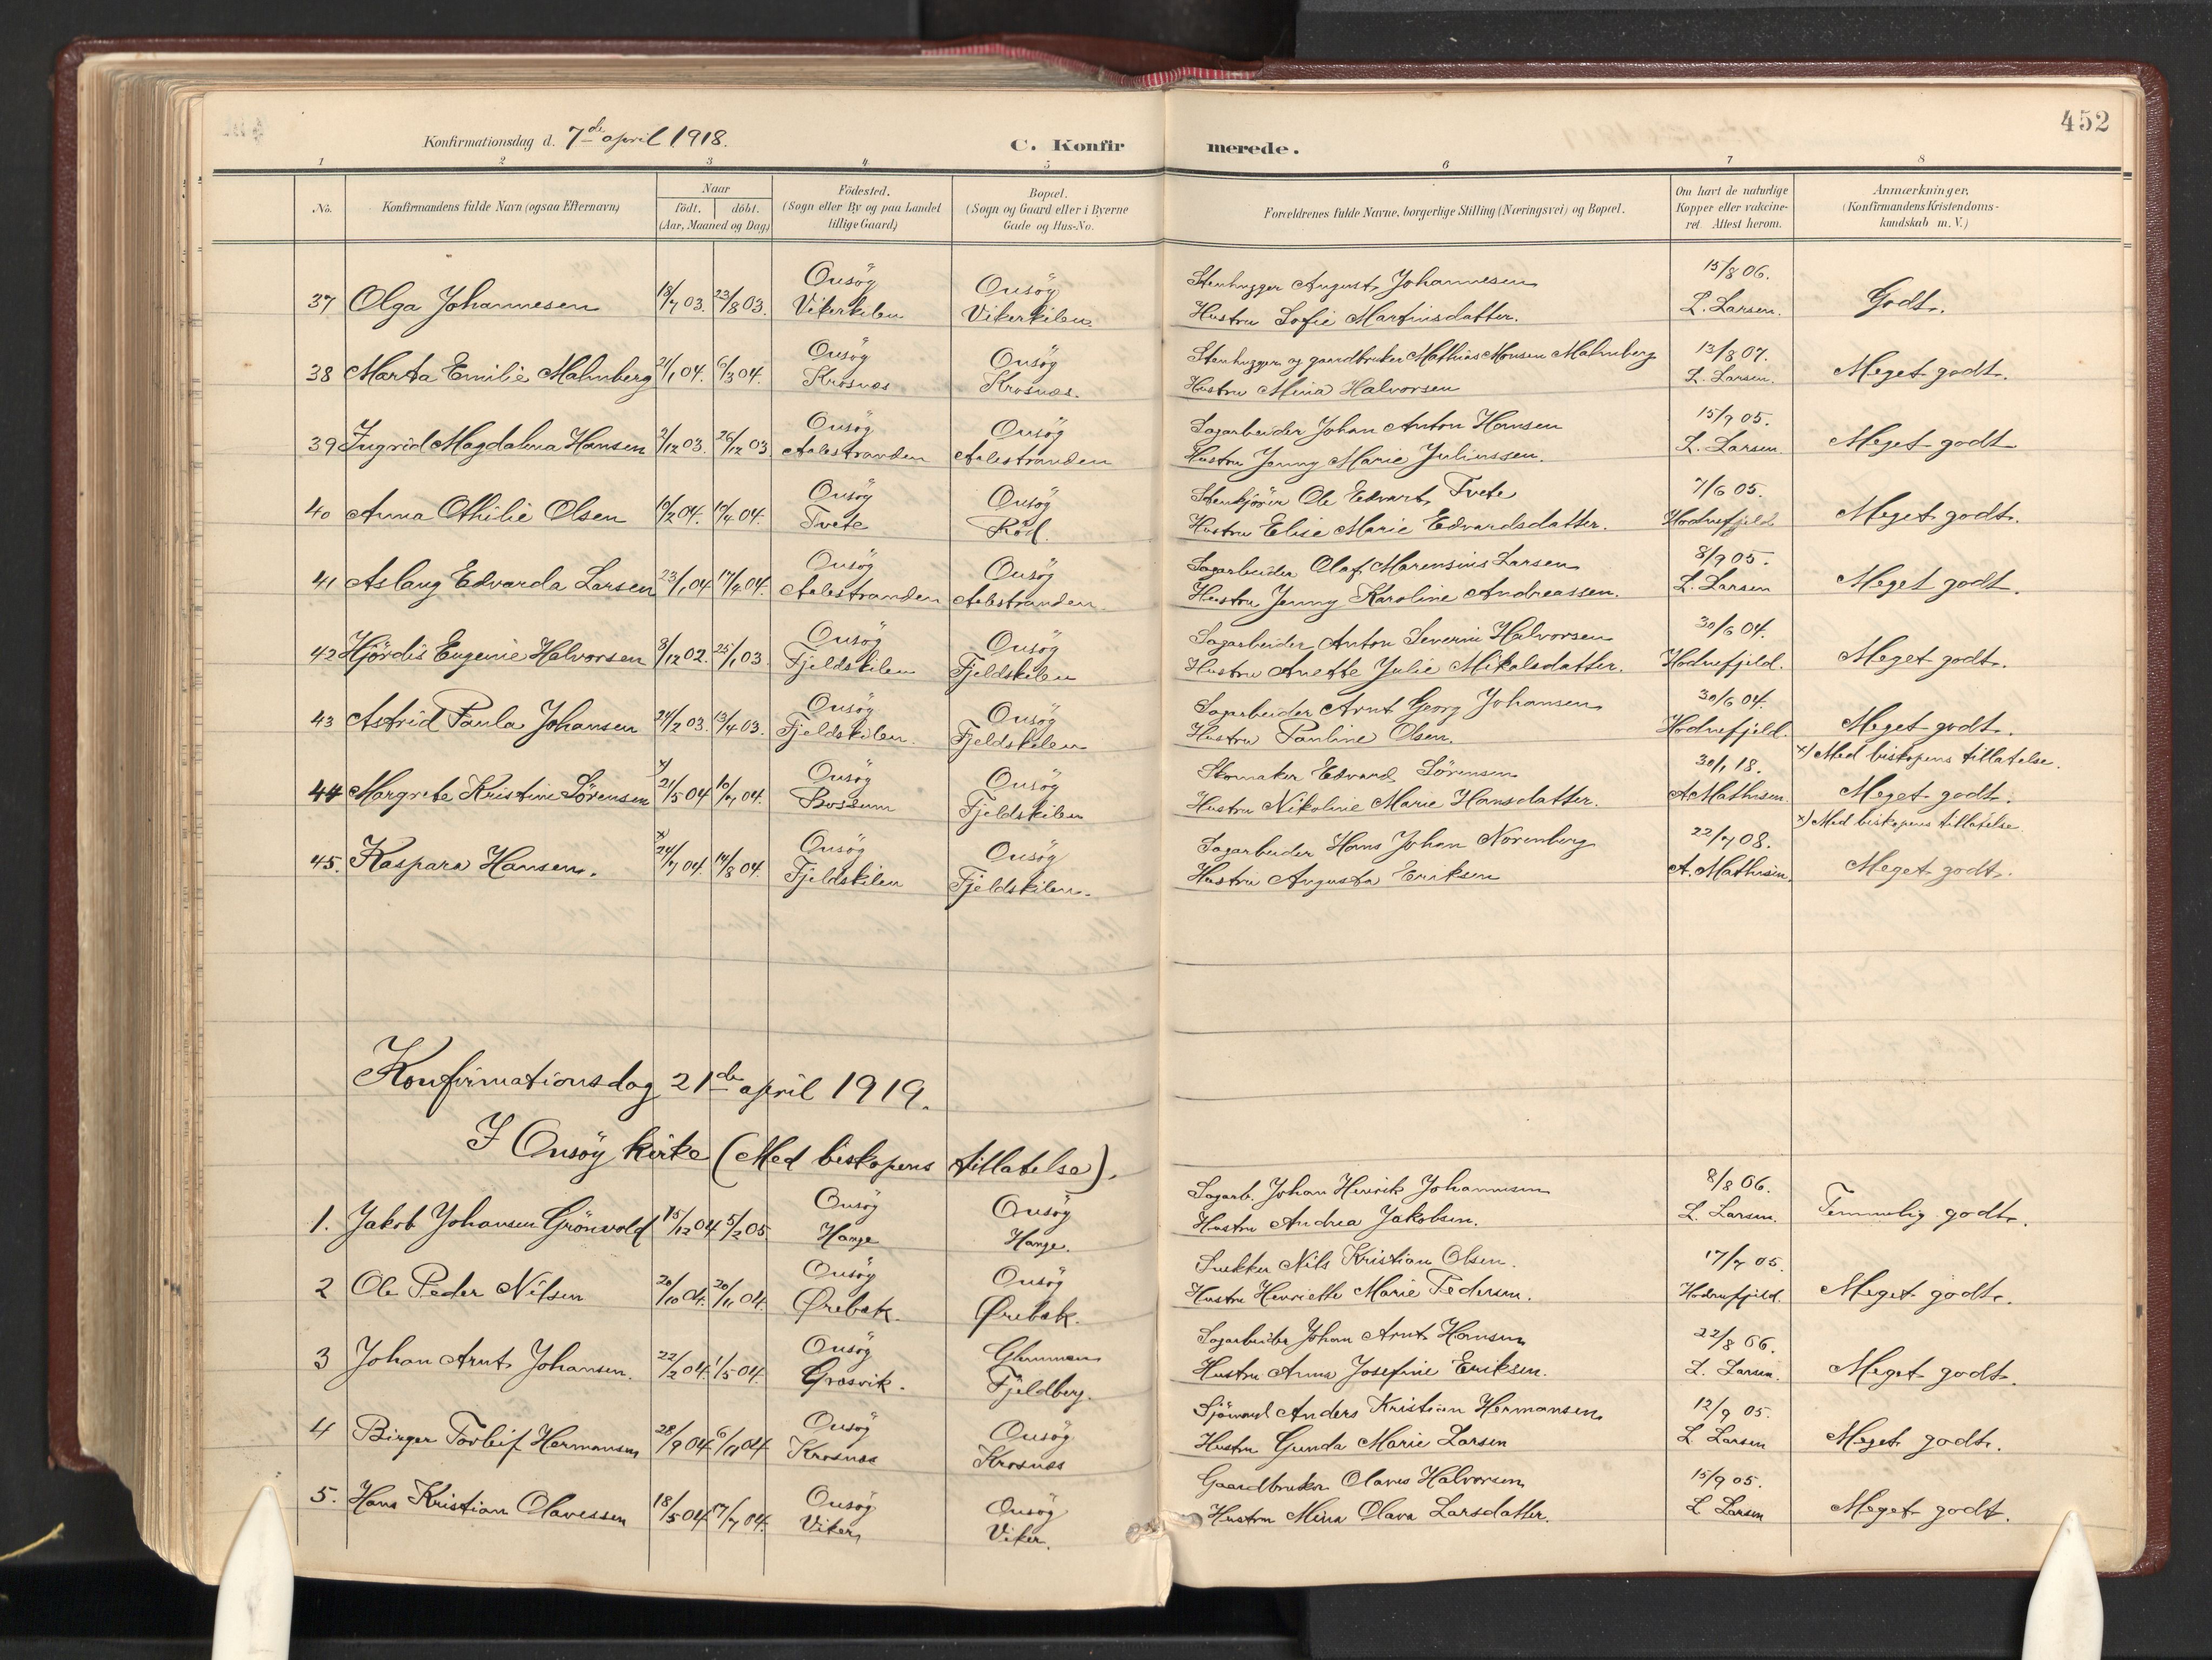 452
Konfirmationsdag d. 7de april 1918.
C. Konfirmerede.
1 2 3 4 5 6 7 8
No.
Konfirmandens fulde Navn (ogsaa Efternavn)
Naar
födt. | döbt.
(Aar, Maaned og Dag)
Födested.
(Sogn eller By og paa Landet
tillige Gaard)
Bopæl.
(Sogn og Gaard eller i Byerne
Gade og Hus-No.
Forældrenes fulde Navne, borgerlige Stilling (Næringsvei) og Bopæl.
Om havt de naturlige
Kopper eller vakcine-
ret. Attest herom.
Anmærkninger.
(Konfirmandens Kristendoms-
kundskab m. V.)
37 Olga Johannesen 18/7 03. 23/8 03. Onsöy Vikerkilen Onsöy Vikerkilen.
Stenhugger August Johannesen
Hustru Sofie Martinsdatter.
15/8 06. L. Larsen. Godt.
38 Marta Emilie Malmberg 21/1 04. 6/3 04. Onsöy Krosnæs Onsöy Krosnæs.
Stenhugger og gaardbruker Mathias Monsen Malmberg
Hustru Mina Halvorsen
13/8 07. L. Larsen. Meget godt.
39 Ingrid Magdalena Hansen 2/12 03. 26/12 03. Onsöy Aalestranden Onsöy Aalestranden
Sagarbeider Johan Anton Hansen
Hustru Jenny Marie Juliussen.
15/9 05. L. Larsen. Meget godt
40 Anna Othilie Olsen 19/2 04. 17/4 04. Onsöy Tvete Onsöy Röd.
Stenkjörer Ole Edvart Tvete
Hustru Elise Marie Edvardsdatter.
7/6 05. Hodnefjeld Meget godt.
41 Aslaug Edvarda Larsen 23/1 04. 17/4 04. Onsöy Aalestranden Onsöy Aalestranden.
Sagarbeider Olaf Marensius Larsen
Hustru Jenny Karoline Andreassen.
8/9 05. L. Larsen Meget godt.
42 Hjördis Eugenie Halvorsen 8/12 02. 25/1 03. Onsöy Fjeldskilen Onsöy Fjeldskilen
Sagarbeider Anton Severin Halvorsen
Hustru Anette Julie Mikalsdatter.
30/6 04. Hodnefjeld. Meget godt.
43 Astrid Paula Johansen 24/2 03. 13/4 03. Onsöy Fjeldskilen. Onsöy Fjeldskilen
Sagarbeider Arnt Georg Johansen
Hustru Pauline Olsen.
30/6 04. Hodnefjeld. Meget godt.
44 Margrete Kristine Sörensen x) 21/5 04 10/7 04. Onsöy Bossum Onsöy Fjeldskilen
Skomaker Edvard Sörensen
Hustru Nikoline Marie Hansdatter.
30/1 18. A. Mathisen. x) Med biskopens tillatelse. Meget godt.
45. Kaspara Hansen. x) 24/7 04. 14/8 04. Onsöy Fjeldskilen Onsöy Fjeldskilen.
Sagarbeider Hans Johan Norenberg
Hustru Augusta Eriksen
22/7 08. A. Mathisen. x) Med biskopens tillatelse. Meget godt.
Konfirmationsdag 21de april 1919.
I Onsöy kirke (Med biskopens tillatelse).
1. Jakob Johansen Grönvold 15/12 04 5/2 05. Onsöy Hauge Onsöy Hauge.
Sagarb. Johan Henrik Johannesen
Hustru Andrea Jakobsen.
8/8 06. L. Larsen. Temmelig godt.
2 Ole Peder Nilsen 20/10 04. 20/11 04. Onsöy Ørebæk. Onsöy Ørebæk.
Snekker Nils Kristian Olsen.
Hustru Henriette Marie Pedersen.
17/7 05. Hodnefjeld. Meget godt.
3 Johan Arnt Johansen. 22/2 04. 1/5 04. Onsöy Græsvik. Glemmen Fjeldberg.
Sagarbeider Johan Arnt Hansen
Hustru Anna Josefine Eriksen.
22/8 06. L. Larsen. Meget godt.
4 Birger Torleif Hermansen 28/9 04. 6/11 04 Onsöy Krosnæs Onsöy Krosnæs
Sjömand Anders Kristian Hermansen
Hustru Gunda Marie Larsen
12/9 05. L. Larsen Meget godt.
5. Hans Kristian Olavessen 18/5 04 17/7 04. Onsöy Viker Onsöy Viker.
Gaardbruker Olaves Halvorsen
Hustru Mina Olava Larsdatter.
15/9 05. L. Larsen Meget godt.